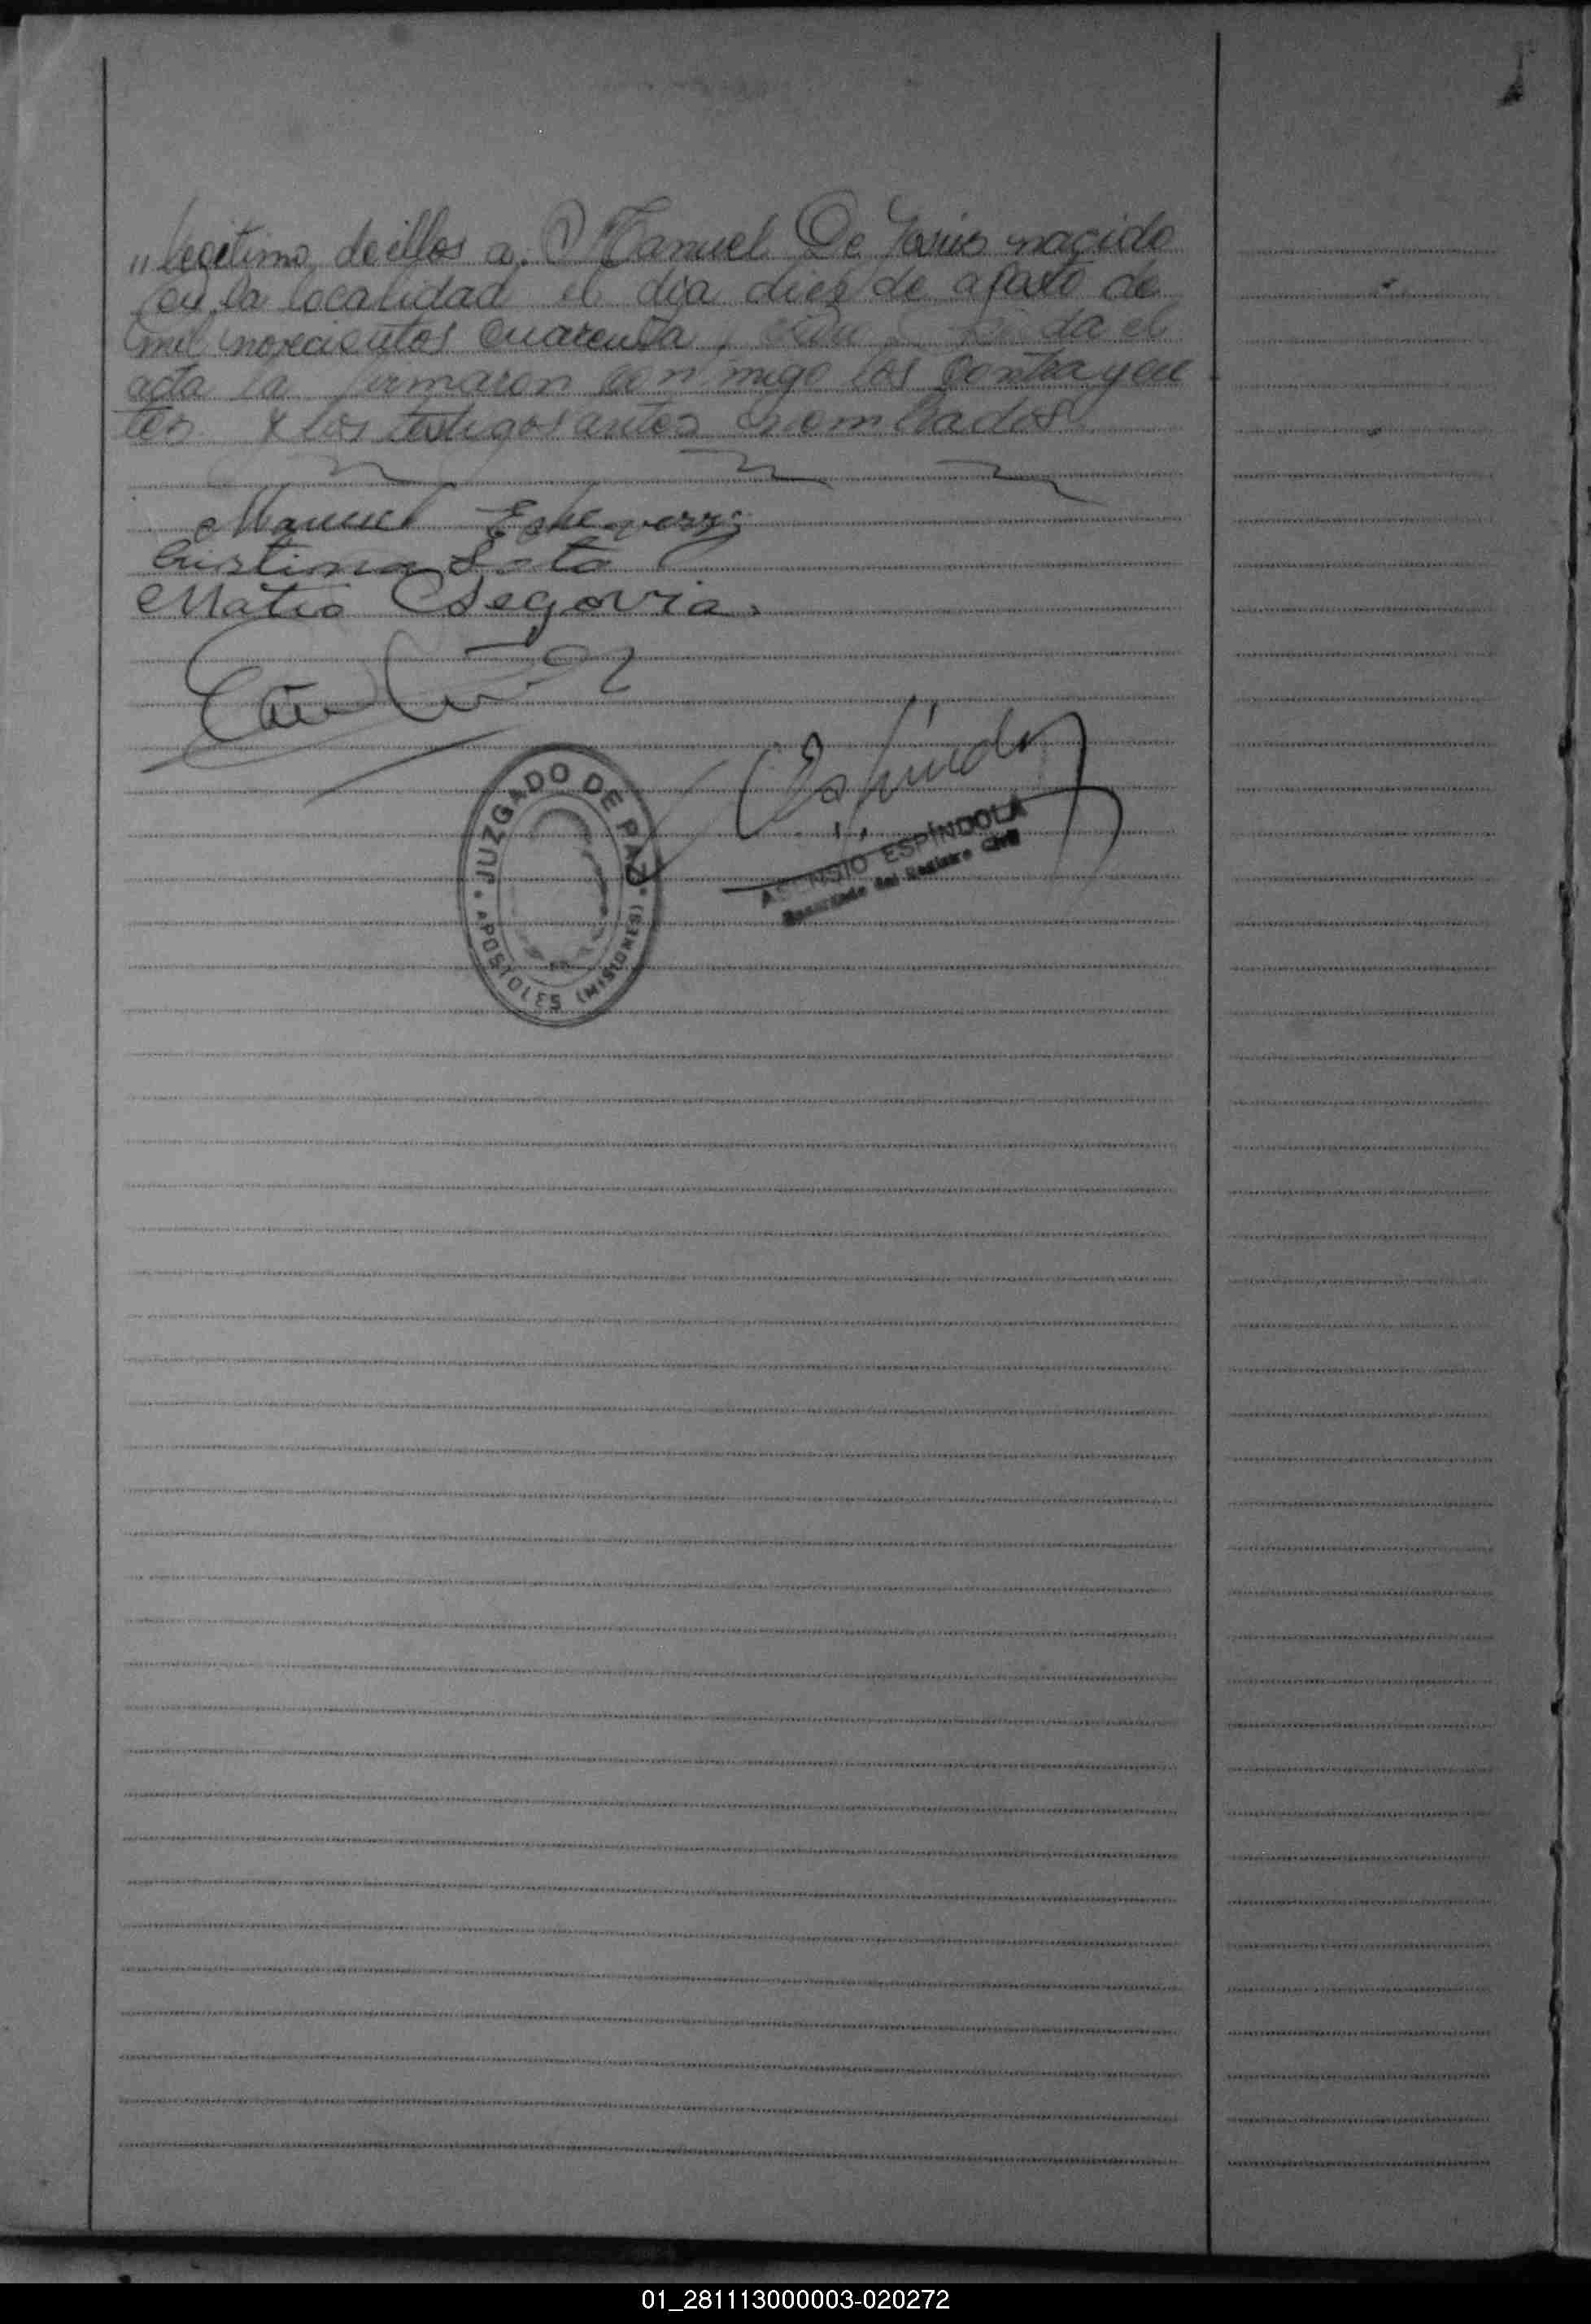 „ legitimo de ellos a Manuel De Jesus nacido
en la localidad el dia diez de agosto de
mil novecientos cuarenta y da el
acta la firmaron conmigo los contrayen
tes y los testigos antes nombrados
Manuel Echeverri
Cristina Soto
Matio Segovia
Espindola
JUZGADO DE PAZ
APOSTOLES (MISIONES)
ASENSIO ESPÍNDOLA
Encargado del Registro Civil
01_281113000003-020272